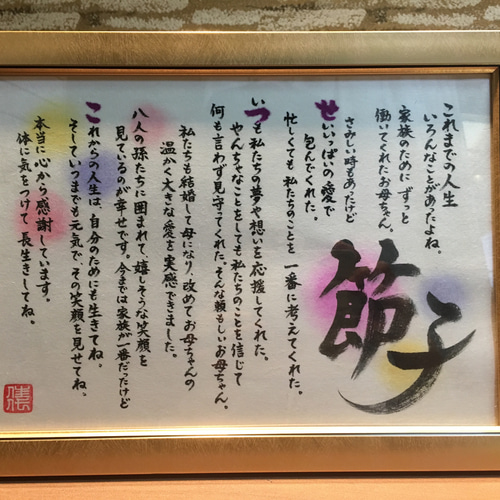 節子
これまでの人生
いろんなことがあったよね。
家族のために ずっと
働いてくれたお母ちゃん。
さみしい時もあったけど
せいいっぱいの愛で
包んでくれた。
忙しくても 私たちのことを 一番に考えてくれた。
いつも私たちの夢や想いを応援してくれた。
やんちゃなことをしても私たちのことを信じて
何も言わず見守ってくれた。そんな頼もしいお母ちゃん。
私たちも結婚して母になり、改めてお母ちゃんの
温かく大きな愛を実感できました。
八人の孫たちに囲まれて、嬉しそうな笑顔を
見ているのが幸せです。今までは家族が一番だったけど
これからの人生は、自分のためにも生きてね。
そしていつまでも元気で、その笑顔を見せてね。
本当に心から感謝しています。
体に気をつけて 長生きしてね。